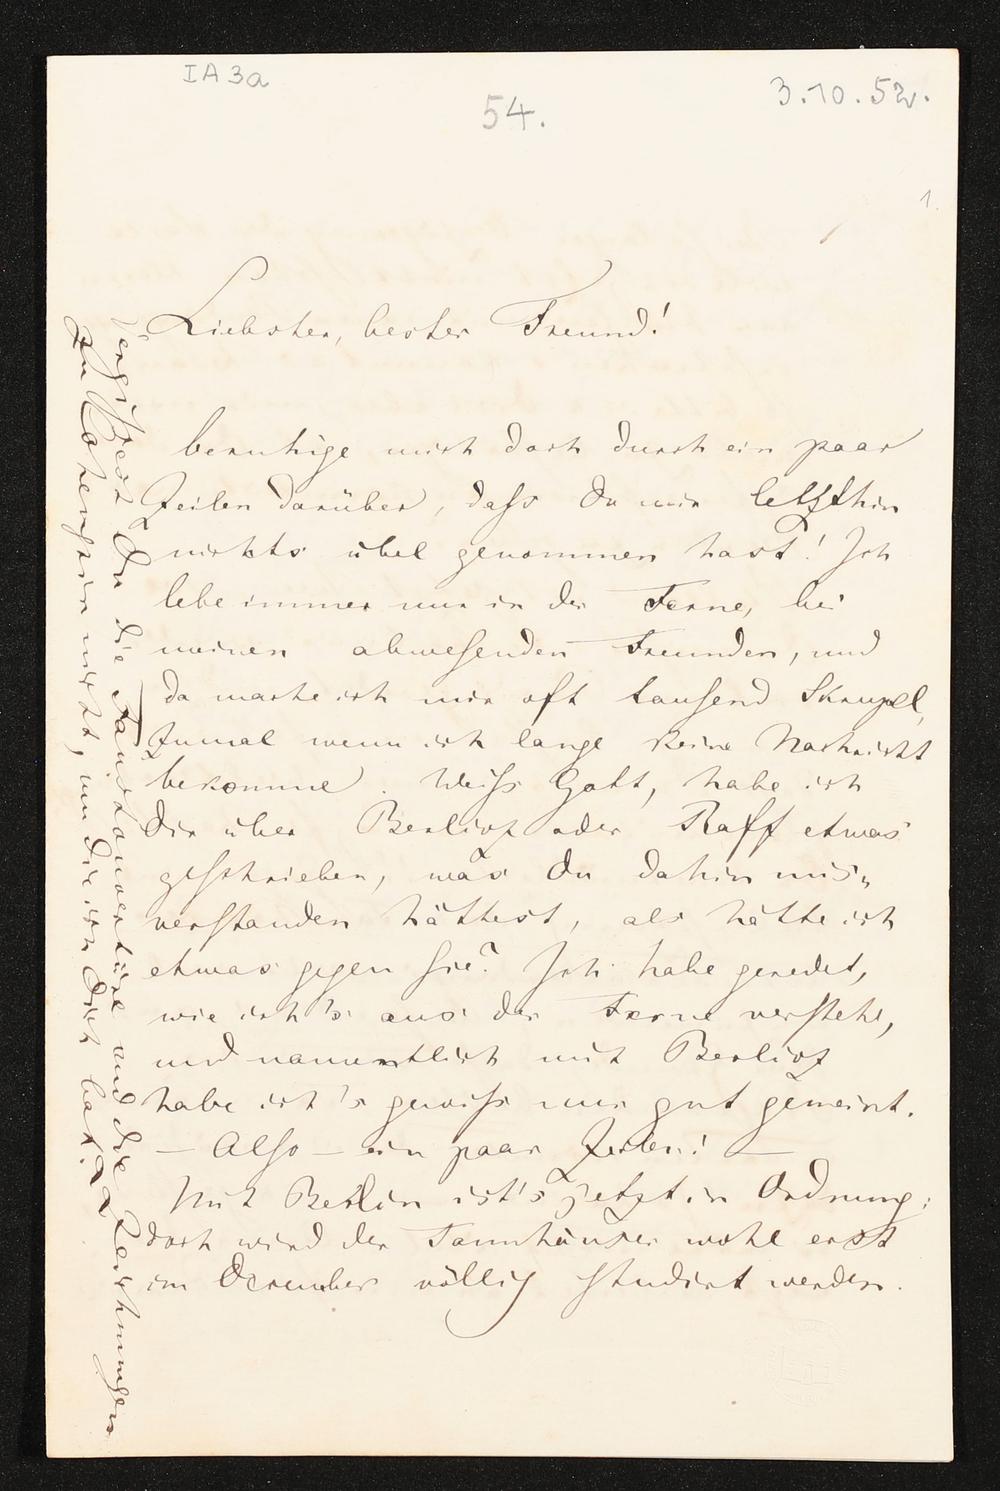 IA3a
54.
3.10.52.
1.
Liebster, bester Freund!
beruhige mich doch durch ein paar
Zeilen darüber, daſs Du mir letzthin
nichts übel genommen hast! Ich
lebe immer nur in der Ferne, bei
meinen abweſenden Freunden, und
da mache ich mir oft tauſend Skrupel,
zumal wenn ich lange keine Nachricht
bekomme. Weiſs Gott, habe ich
Dir über Berlioz oder Raff etwas
geſchrieben, was Du dahin mis„
verſtanden hättest, als hätte ich
etwas gegen ſie? Ich habe geredet,
wie ich's aus der Ferne verſtehe,
und namentlich mit Berlioz
habe ich's gewiſs nur gut gemeint.
— Alſo — ein paar Zeilen! —
Mit Berlin ist's jetzt in Ordnung:
doch wird der Tannhäuser wohl erst
im December völlig ſtudirt werden.
Vergiſsest Du die Faustouvertüre und die Zeichnungen
zu Lohengrin nicht, um die ich Dich bat?